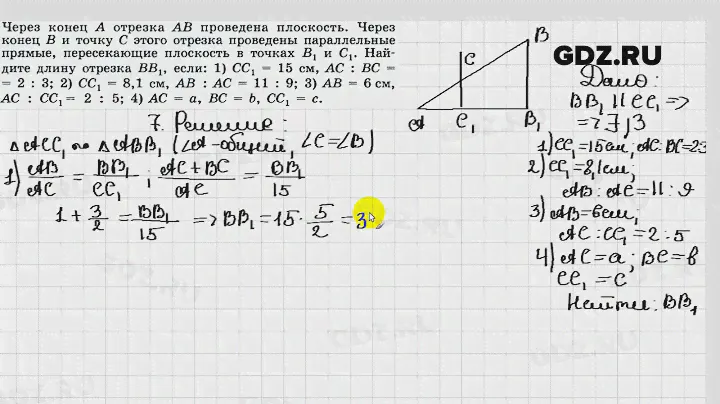 Через конец A отрезка AB проведена плоскость. Через
конец B и точку C этого отрезка проведены параллельные
прямые, пересекающие плоскость в точках B₁ и C₁. Най-
дите длину отрезка BB₁, если: 1) CC₁ = 15 см, AC : BC =
= 2 : 3; 2) CC₁ = 8,1 см, AB : AC = 11 : 9; 3) AB = 6 см,
AC : CC₁ = 2 : 5; 4) AC = a, BC = b, CC₁ = c.
B
C
A C₁ B₁
GDZ.RU
Дано:
BB₁ || CC₁ =>
1) CC₁ = 15 см, AC : BC = 2:3
2) CC₁ = 8,1 см,
AB : AC = 11 : 9
3) AB = 6 см,
AC : CC₁ = 2 : 5
4) AC = a; BC = b
CC₁ = C
Найти: BB₁
7. Решение:
△ACC₁ ~ △ABB₁ (∠A - общий, ∠C = ∠B)
1) AB/AC = BB₁/CC₁ ; AC + BC/AC = BB₁/15
1 + 3/2 = BB₁/15 => BB₁ = 15 · 5/2 = 3